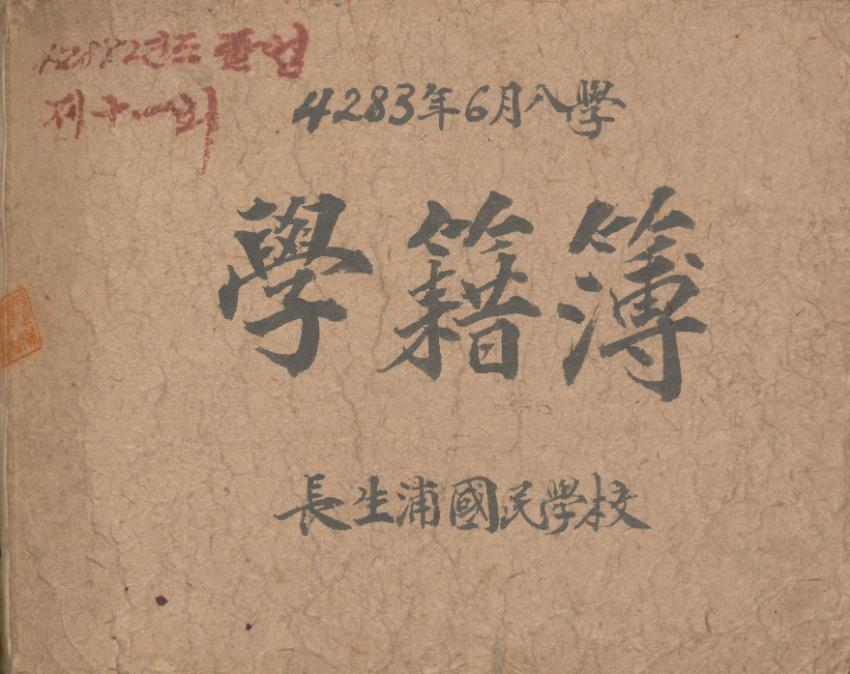 4288년도 졸업
제十一회
4283年6月入學
學籍簿
長生浦國民學校